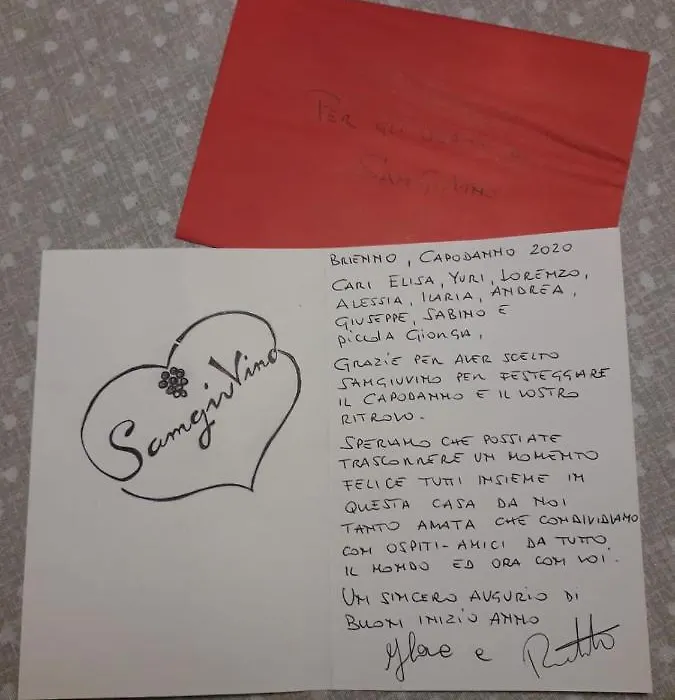 PER GLI OSPITI DI
SANGIUVINO
SangiuVino
BRIENNO, CAPODANNO 2020
CARI ELISA, YURI, LORENZO,
ALESSIA, ILARIA, ANDREA,
GIUSEPPE, SABINO E
piccola Gionga,
GRAZIE PER AVER SCELTO
SANGIUVINO PER FESTEGGIARE
IL CAPODANNO E IL VOSTRO
RITROVO.
SPERIAMO CHE POSSIATE
TRASCORRERE UN MOMENTO
FELICE TUTTI INSIEME IN
QUESTA CASA DA NOI
TANTO AMATA CHE CONDIVIDIAMO
CON OSPITI-AMICI DA TUTTO
IL MONDO ED ORA CON VOI.
UN SINCERO AUGURIO DI
BUON INIZIO ANNO
e